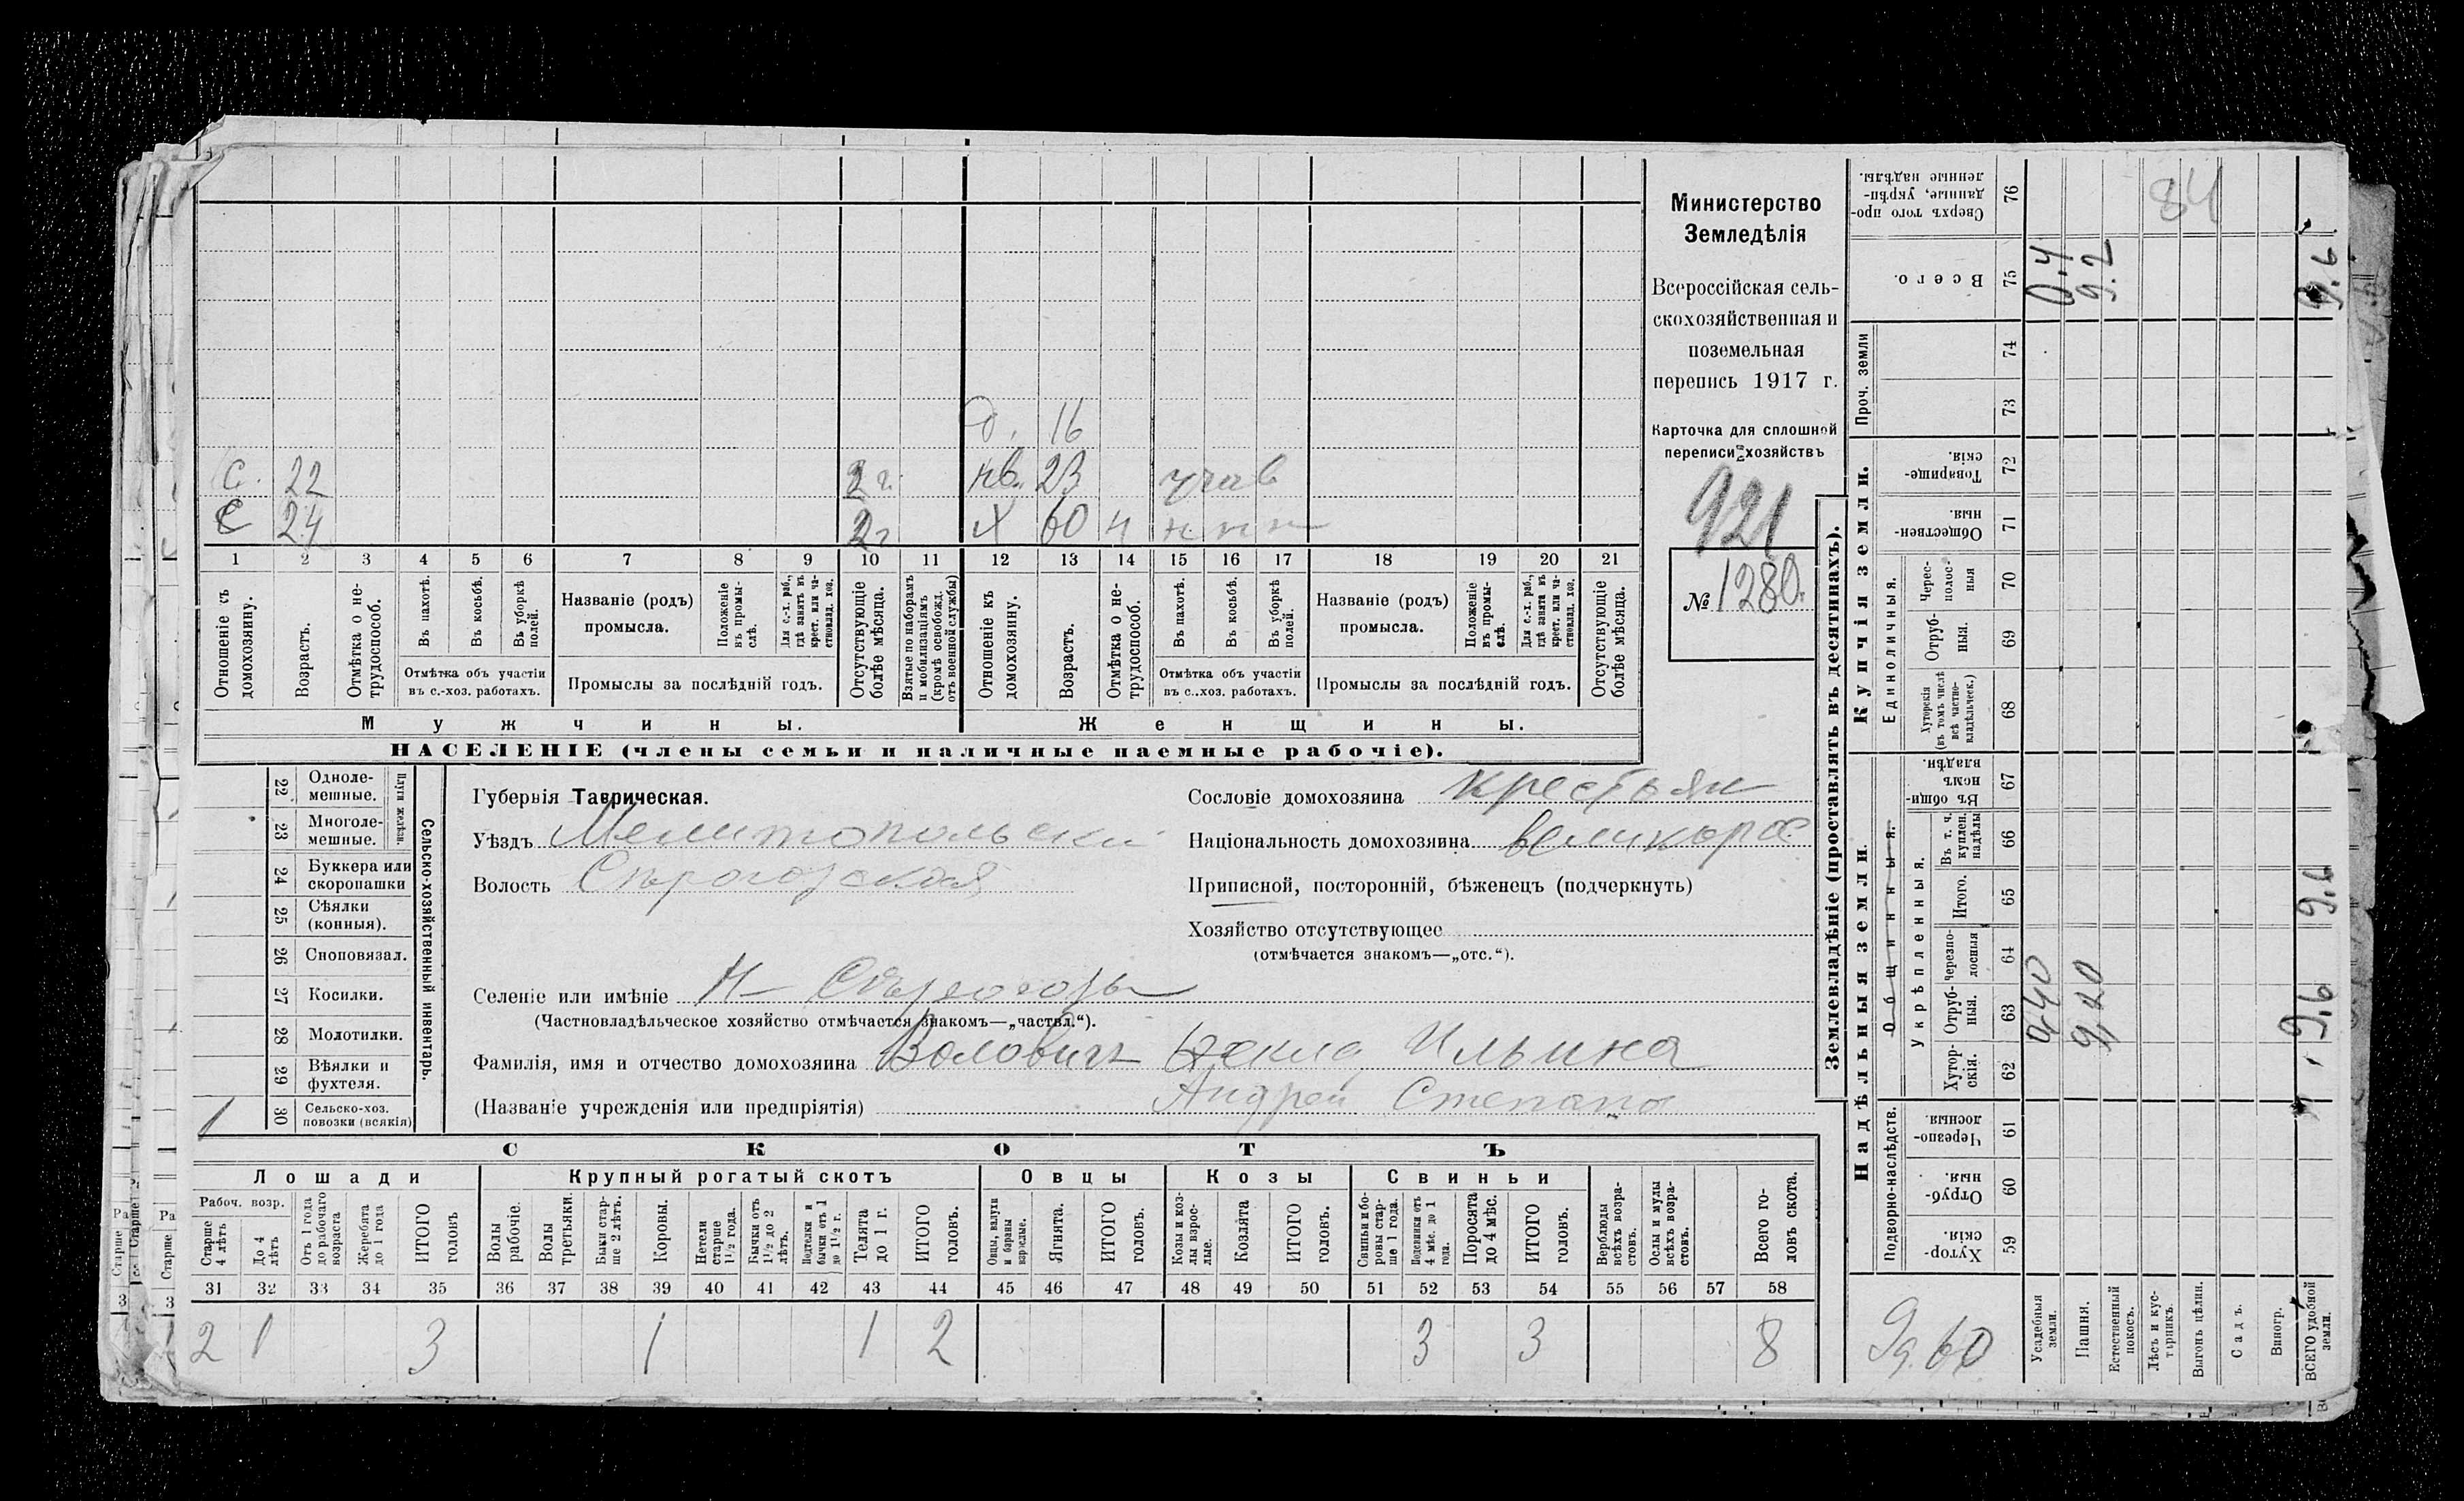 О. 16
С. 22 2 г. нв. 23
С 24 2 г Х 60 н н н н
1 2 3 4 5 6 7 8 9 10 11 12 13 14 15 16 17 18 19 20 21
Отношеніе съ домохозяину.
Возрастъ.
Отмѣтка о не-трудоспособ.
Въ пахотѣ.
Въ косьбѣ.
Въ уборкѣ полей.
Отмѣтка объ участіи въ с.-хоз. работахъ.
Названіе (родъ) промысла.
Положеніе въ промы-слѣ.
Для с.-х. раб., гдѣ занятъ въ крест. или ча-стновлад. хоз.
Промыслы за послѣдній годъ.
Отсутствующіе болѣе мѣсяца.
Взятые по наборамъ и мобилизаціямъ (кромѣ освобожд. отъ военной службы)
Отношеніе къ домохозяину.
Возрастъ.
Отмѣтка о не-трудоспособ.
Въ пахотѣ.
Въ косьбѣ.
Въ уборкѣ полей.
Отмѣтка объ участіи въ с..хоз. работахъ.
Названіе (родъ) промысла.
Положеніе въ промы-слѣ.
Для с.-х. раб., гдѣ занята въ крест. или ча-стновлад. хоз.
Промыслы за послѣдній годъ.
Отсутствующіе болѣе мѣсяца.
Мужчины. Женщины.
НАСЕЛЕНІЕ (члены семьи и наличные наемные рабочіе).
Министерство
Земледѣлія
Всероссійская сель-
скохозяйственная и
поземельная
перепись 1917 г.
Карточка для сплошной
переписи хозяйствъ
921
№ 1280.
22 Одноле-мешные.
23 Многоле-мешные.
Плуги желѣзн.
24 Буккера или скоропашки
25 Сѣялки (конныя).
26 Сноповязал.
27 Косилки.
28 Молотилки.
29 Вѣялки и фухтеля.
30 Сельско-хоз. повозки (всякія)
1
Сельско-хозяйственный инвентарь.
Губернія Таврическая.
Уѣздъ Мелитопольскій
Волость
Сословіе домохозяина крестьян
Національность домохозяина великорос
Приписной, посторонній, бѣженецъ (подчеркнуть)
Хозяйство отсутствующее
(отмѣчается знакомъ—„отс.“).
Селеніе или имѣніе Н-
(Частновладѣльческое хозяйство отмѣчается знакомъ—„частвл.“).
Фамилія, имя и отчество домохозяина Воловичъ Ильина
(Названіе учрежденія или предпріятія) Андрей Степано
СКОТЪ
Лошади Крупный рогатый скотъ Овцы Козы Свиньи
Рабоч. возр.
Старше 4 лѣтъ
До 4 лѣтъ
Отъ 1 года до рабочаго возраста
Жеребята до 1 года
ИТОГО головъ
Волы рабочіе.
Волы третьяки.
Быки стар-ше 2 лѣтъ.
Коровы.
Нетели старше 1½ года.
Бычки отъ 1½ до 2 лѣтъ.
Подтелки и бычки отъ 1 до 1½ г.
Телята до 1 г.
ИТОГО головъ.
Овцы, валухи и бараны взрослые.
Ягнята.
ИТОГО головъ.
Козы и коз-лы взрос-лые.
Козлята
ИТОГО головъ.
Свиньи и бо-ровы стар-ше 1 года.
Подсвинки отъ 4 мѣс. до 1 года.
Поросята до 4 мѣс.
ИТОГО головъ.
Верблюды всѣхъ возра-стовъ.
Ослы и мулы всѣхъ возра-стовъ.
Всего го-ловъ скота.
31 32 33 34 35 36 37 38 39 40 41 42 43 44 45 46 47 48 49 50 51 52 53 54 55 56 57 58
2 1 3 1 1 2 3 3 8
Землевладѣніе (проставлять въ десятинахъ).
Купчія земли.
Надѣльныя земли.
Сверхъ того про-данные, укрѣп-ленные надѣлы. 76
84
Всего. 75 0.4 9.2 9.6
Проч. земли 74 73
Товарище-скія. 72
Обществен-ныя. 71
Единоличныя.
Черес-полос-ныя 70
Отруб-ныя. 69
Хуторскія (въ томъ числѣ всѣ частно-владѣльческ.) 68
Общинныя.
Въ общи-номъ владѣн. 67
Укрѣпленныя.
Въ т. ч. куплен. надѣлы 66
Итого. 65 9.6
Черезпо-лосныя 64
Отруб-ныя. 63 0,40 9,20 9,6
Хутор-скія. 62
Подворно-наслѣдств.
Черезпо-лосныя. 61
Отруб-ныя. 60
Хутор-скія. 59
9д.60
Усадебныя земли.
Пашня.
Естественный покосъ.
Лѣсъ и кус-тарникъ.
Выгонъ цѣлин.
Садъ.
Виногр.
ВСЕГО удобной земли.